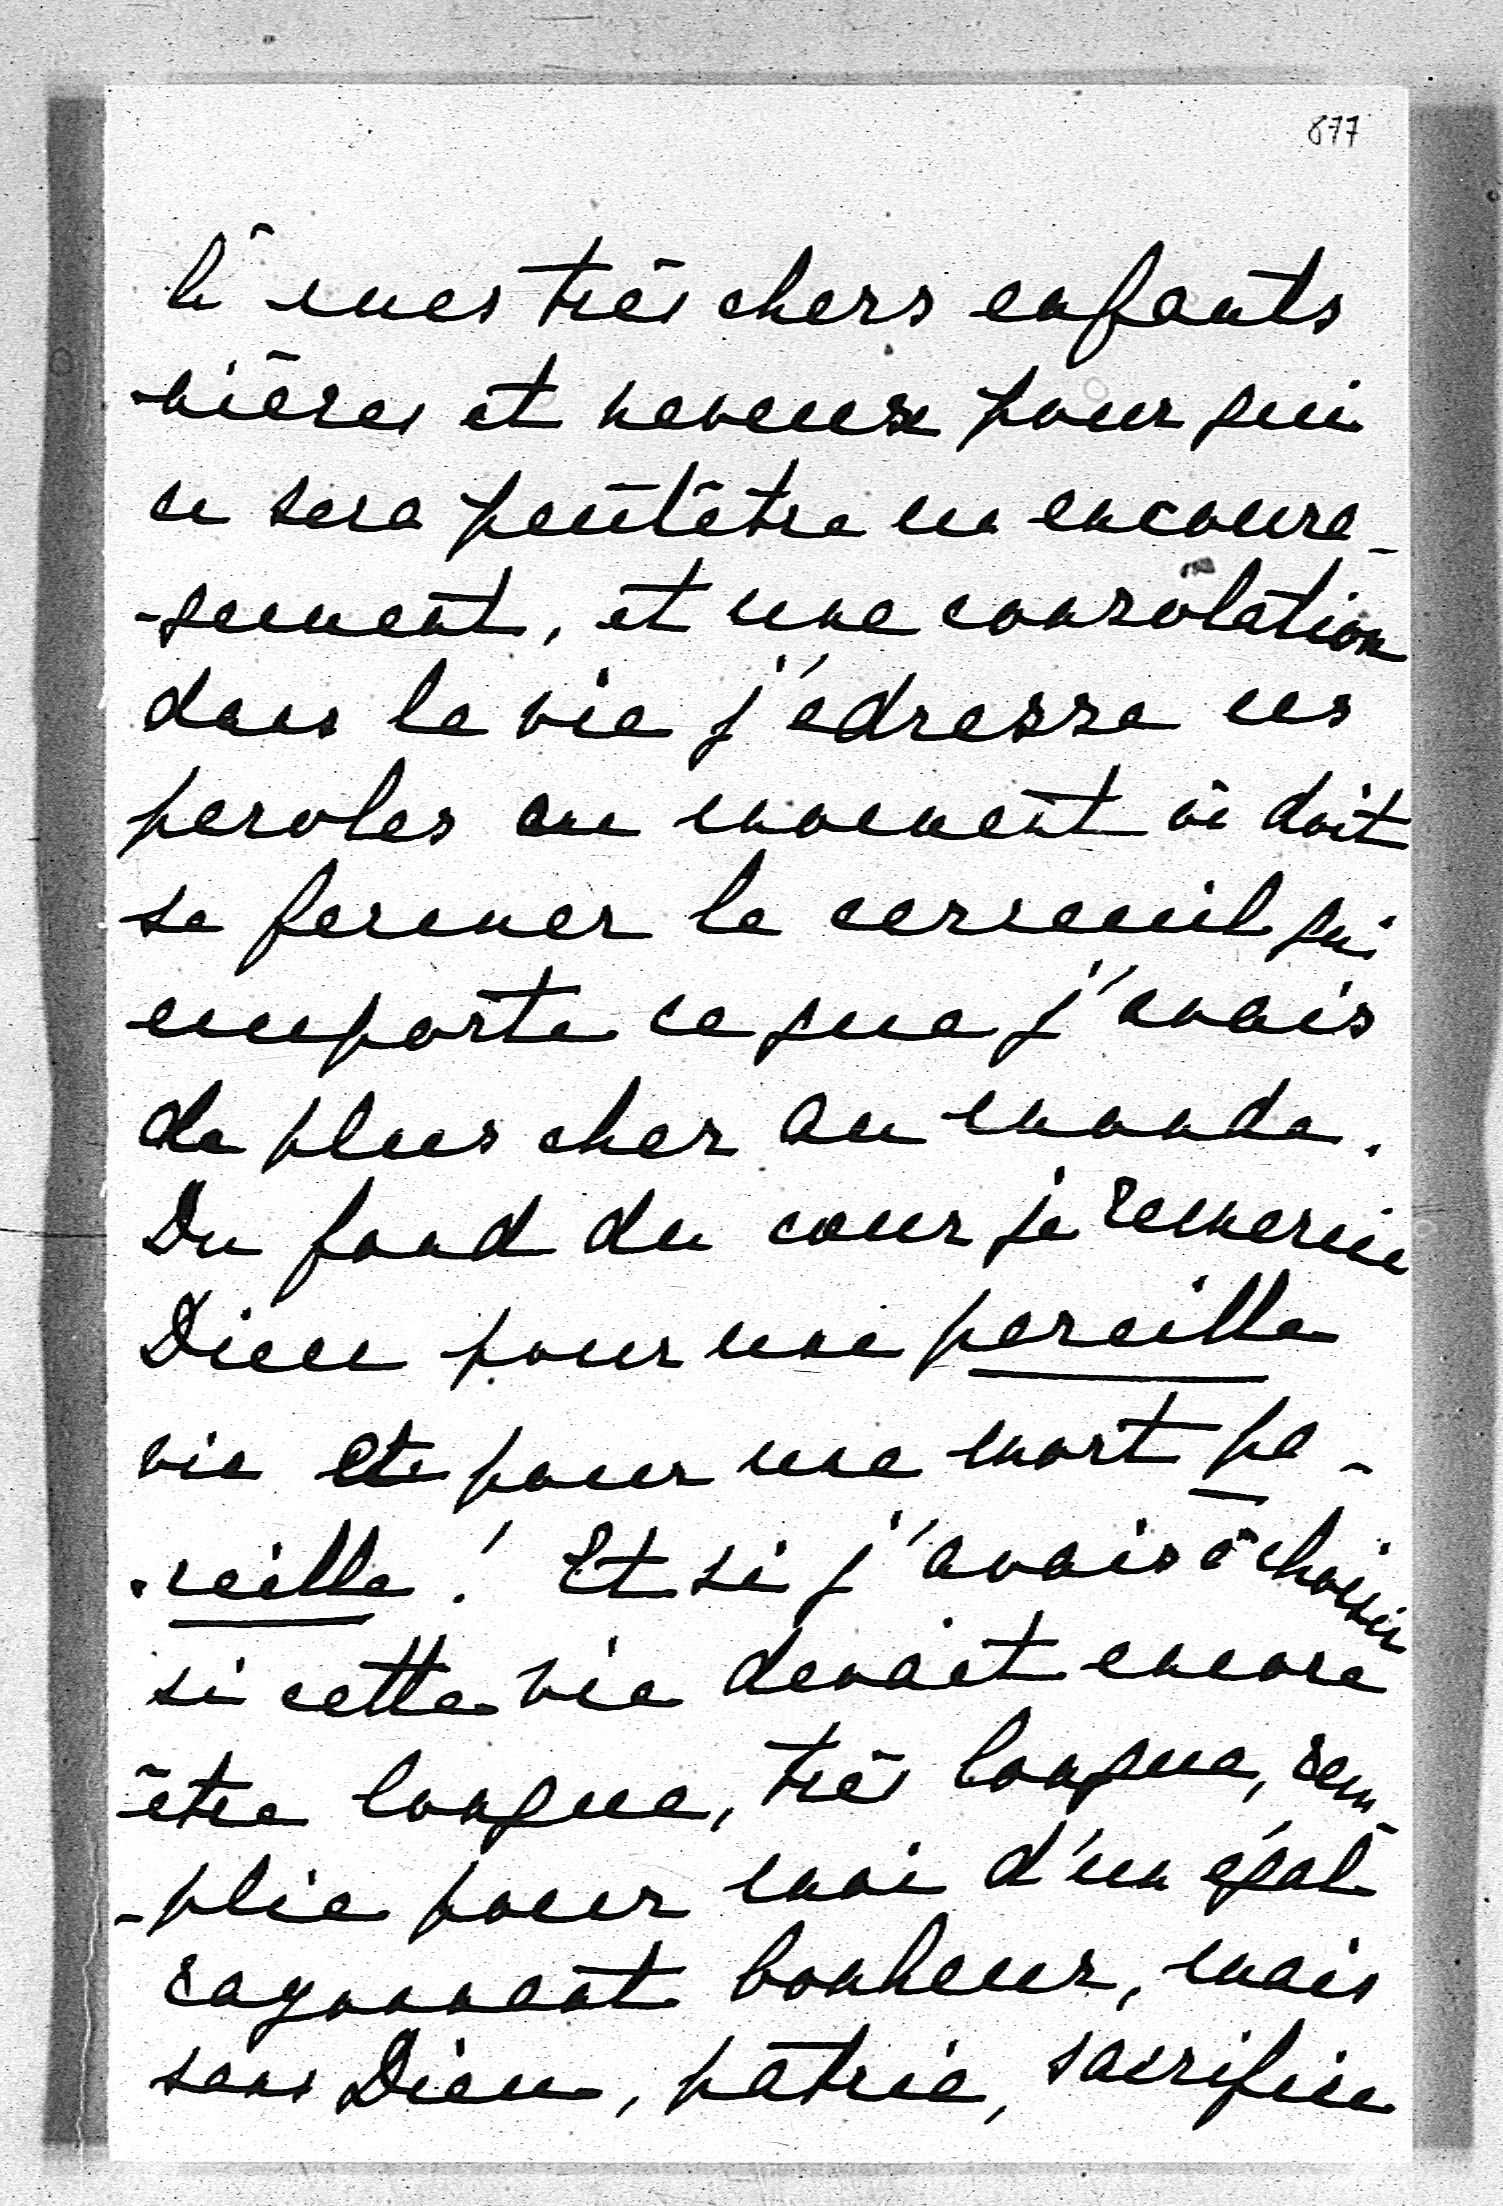 877
à mes très chers enfants
nièces et neveux pour qui
ce sera peutêtre un encoura-
-gement, et une consolation
dans la vie j'adresse ces
paroles au moment où doit
se fermer le cerceuil qui
emporte ce que j'avais
de plus cher au monde.
Du fond du cœur je remercie
Dieu pour une pareille
vie et pour une mort pa-
-reille! Et si j'avais à choisir
si cette vie devait encore
être longue, très longue, rem-
-plie pour moi d'un égal
rayonnant bonheur, mais
sans Dieu, patrie, sacrifice